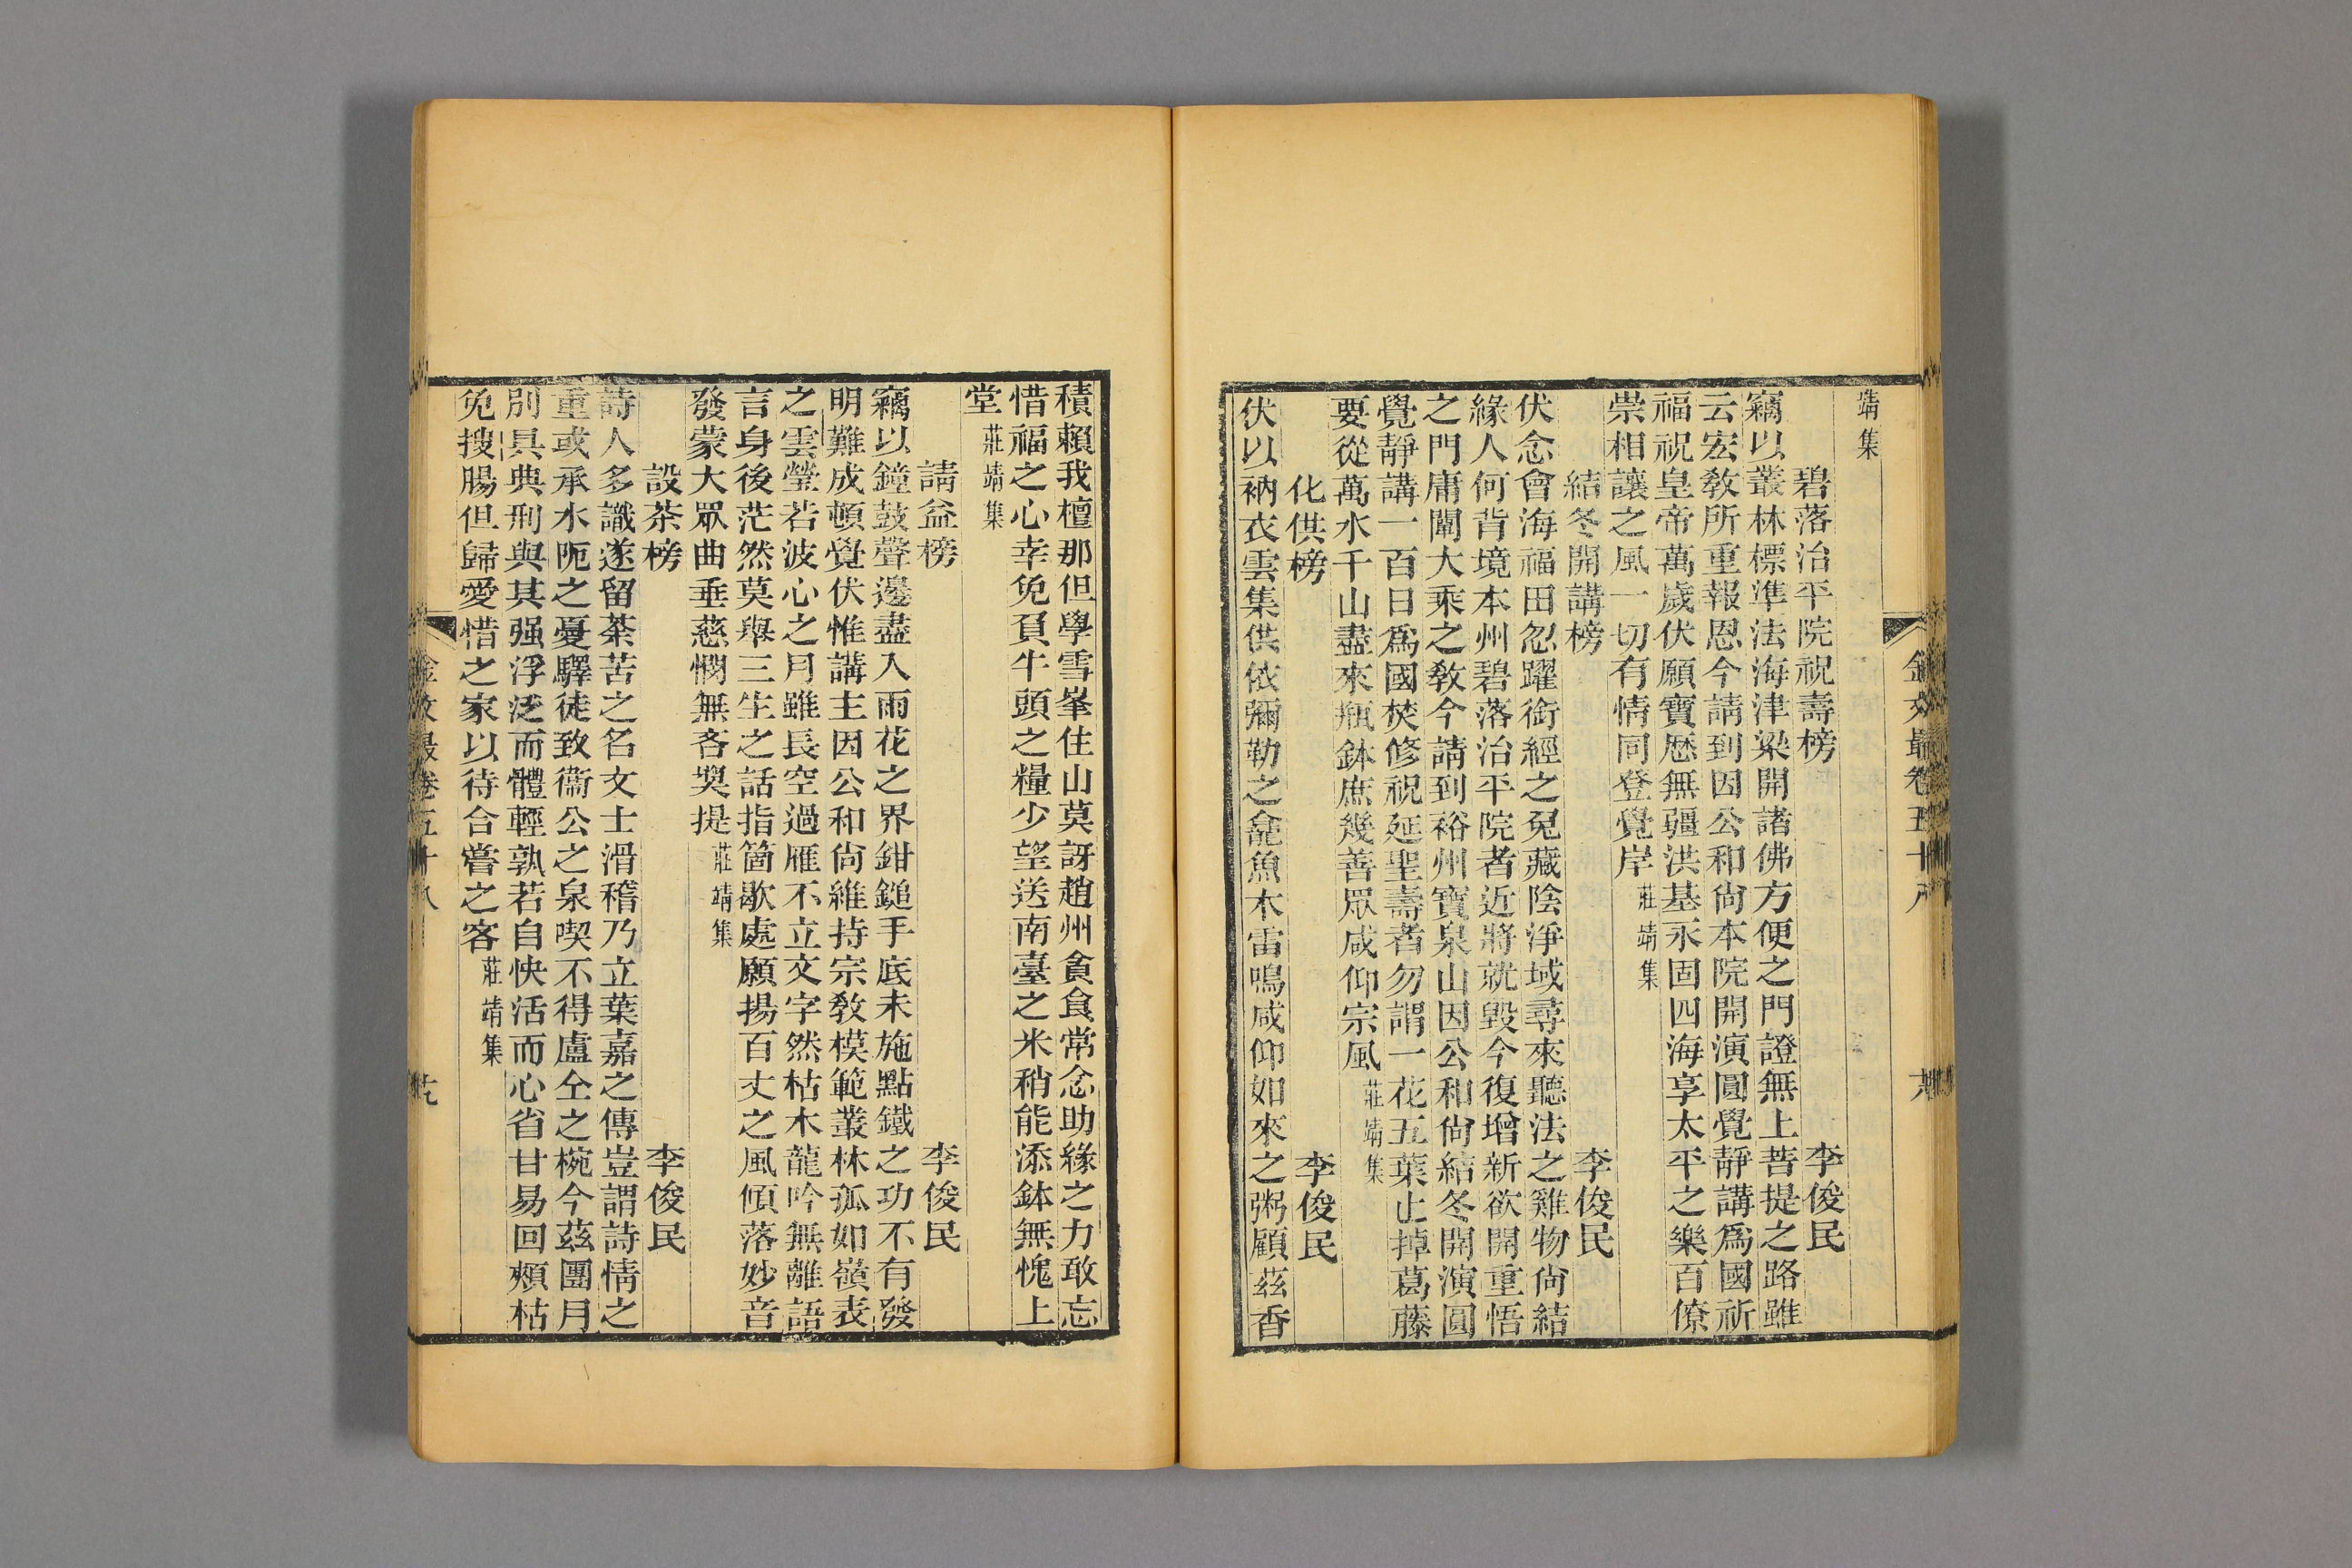 靖集
碧落治平院祝壽榜　李俊民
竊以叢林標準法海津梁開諸佛方便之門證無上菩提之路雖
云宏敎所重報恩今請到因公和尙本院開演圓覺靜講爲國祈
福祝皇帝萬歲伏願寶厯無疆洪基永固四海享太平之樂百僚
崇相讓之風一切有情同登覺岸莊靖集
結冬開講榜　李俊民
伏念會海福田忽躍銜經之兔藏陰淨域尋來聽法之雞物尙結
緣人何背境本州碧落治平院者近將就毀今復增新欲開重悟
之門庸闡大乘之敎今請到裕州寶泉山因公和尙結冬開演圓
覺靜講一百日爲國焚修祝延聖壽者勿謂一花五葉止掉葛藤
要從萬水千山盡來瓶鉢庶幾善眾咸仰宗風莊靖集
化供榜　李俊民
伏以衲衣雲集供依彌勒之龕魚木雷鳴咸仰如來之粥顧茲香
積賴我檀那但學雪峯住山莫訝趙州貪食常念助緣之力敢忘
惜福之心幸免負牛頭之糧少望送南臺之米稍能添鉢無愧上
堂莊靖集
請益榜　李俊民
竊以鐘鼓聲邊盡入雨花之界鉗鎚手底未施點鐵之功不有發
明難成頓覺伏惟講主因公和尙維持宗敎模範叢林孤如嶺表
之雲瑩若波心之月雖長空過雁不立文字然枯木龍吟無離語
言身後茫然莫舉三生之話指箇歇處願揚百丈之風傾落妙音
發蒙大眾曲垂慈憫無吝奨提莊靖集
設茶榜　李俊民
詩人多識遂留荼苦之名文士滑稽乃立葉嘉之傳豈謂詩情之
重或承水阨之憂驛徒致衞公之泉喫不得盧仝之椀今茲團月
別具典刑與其强浮泛而體輕孰若自怏活而心省甘易回頰枯
免搜腸但歸愛惜之家以待合嘗之客莊靖集
金文最卷五十八